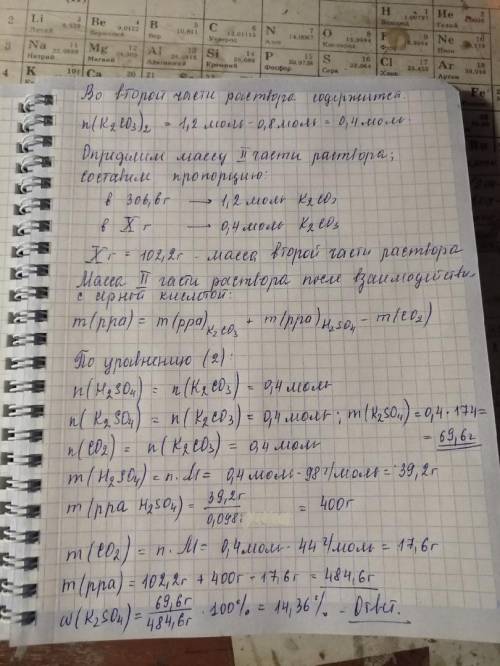 Li
Be
B
C
N
O
H
He
3 Na
Mg
Al
Si
P
S
Cl
Ar
4 K
Ca
Во второй части раствора содержится
n(K₂CO₃)₂ = 1,2 моль - 0,8 моль = 0,4 моль
Определим массу II части раствора;
составим пропорцию:
в 306,6г → 1,2 моль K₂CO₃
в X г → 0,4 моль K₂CO₃
X г = 102,2г - масса второй части раствора
Масса II части раствора после взаимодействия
с серной кислотой:
m(рра) = m(рра)K₂CO₃ + m(рра)H₂SO₄ - m(CO₂)
По уравнению (2):
n(H₂SO₄) = n(K₂CO₃) = 0,4 моль
n(K₂SO₄) = n(K₂CO₃) = 0,4 моль; m(K₂SO₄) = 0,4 · 174 =
n(CO₂) = n(K₂CO₃) = 0,4 моль = 69,6г
m(H₂SO₄) = n·M = 0,4 моль · 98 г/моль = 39,2г
m(рра H₂SO₄) = 39,2г / 0,098 = 400г
m(CO₂) = n·M = 0,4 моль · 44 г/моль = 17,6г
m(рра) = 102,2г + 400г - 17,6г = 484,6г
ω(K₂SO₄) = 69,6г / 484,6г · 100% = 14,36% - Ответ.